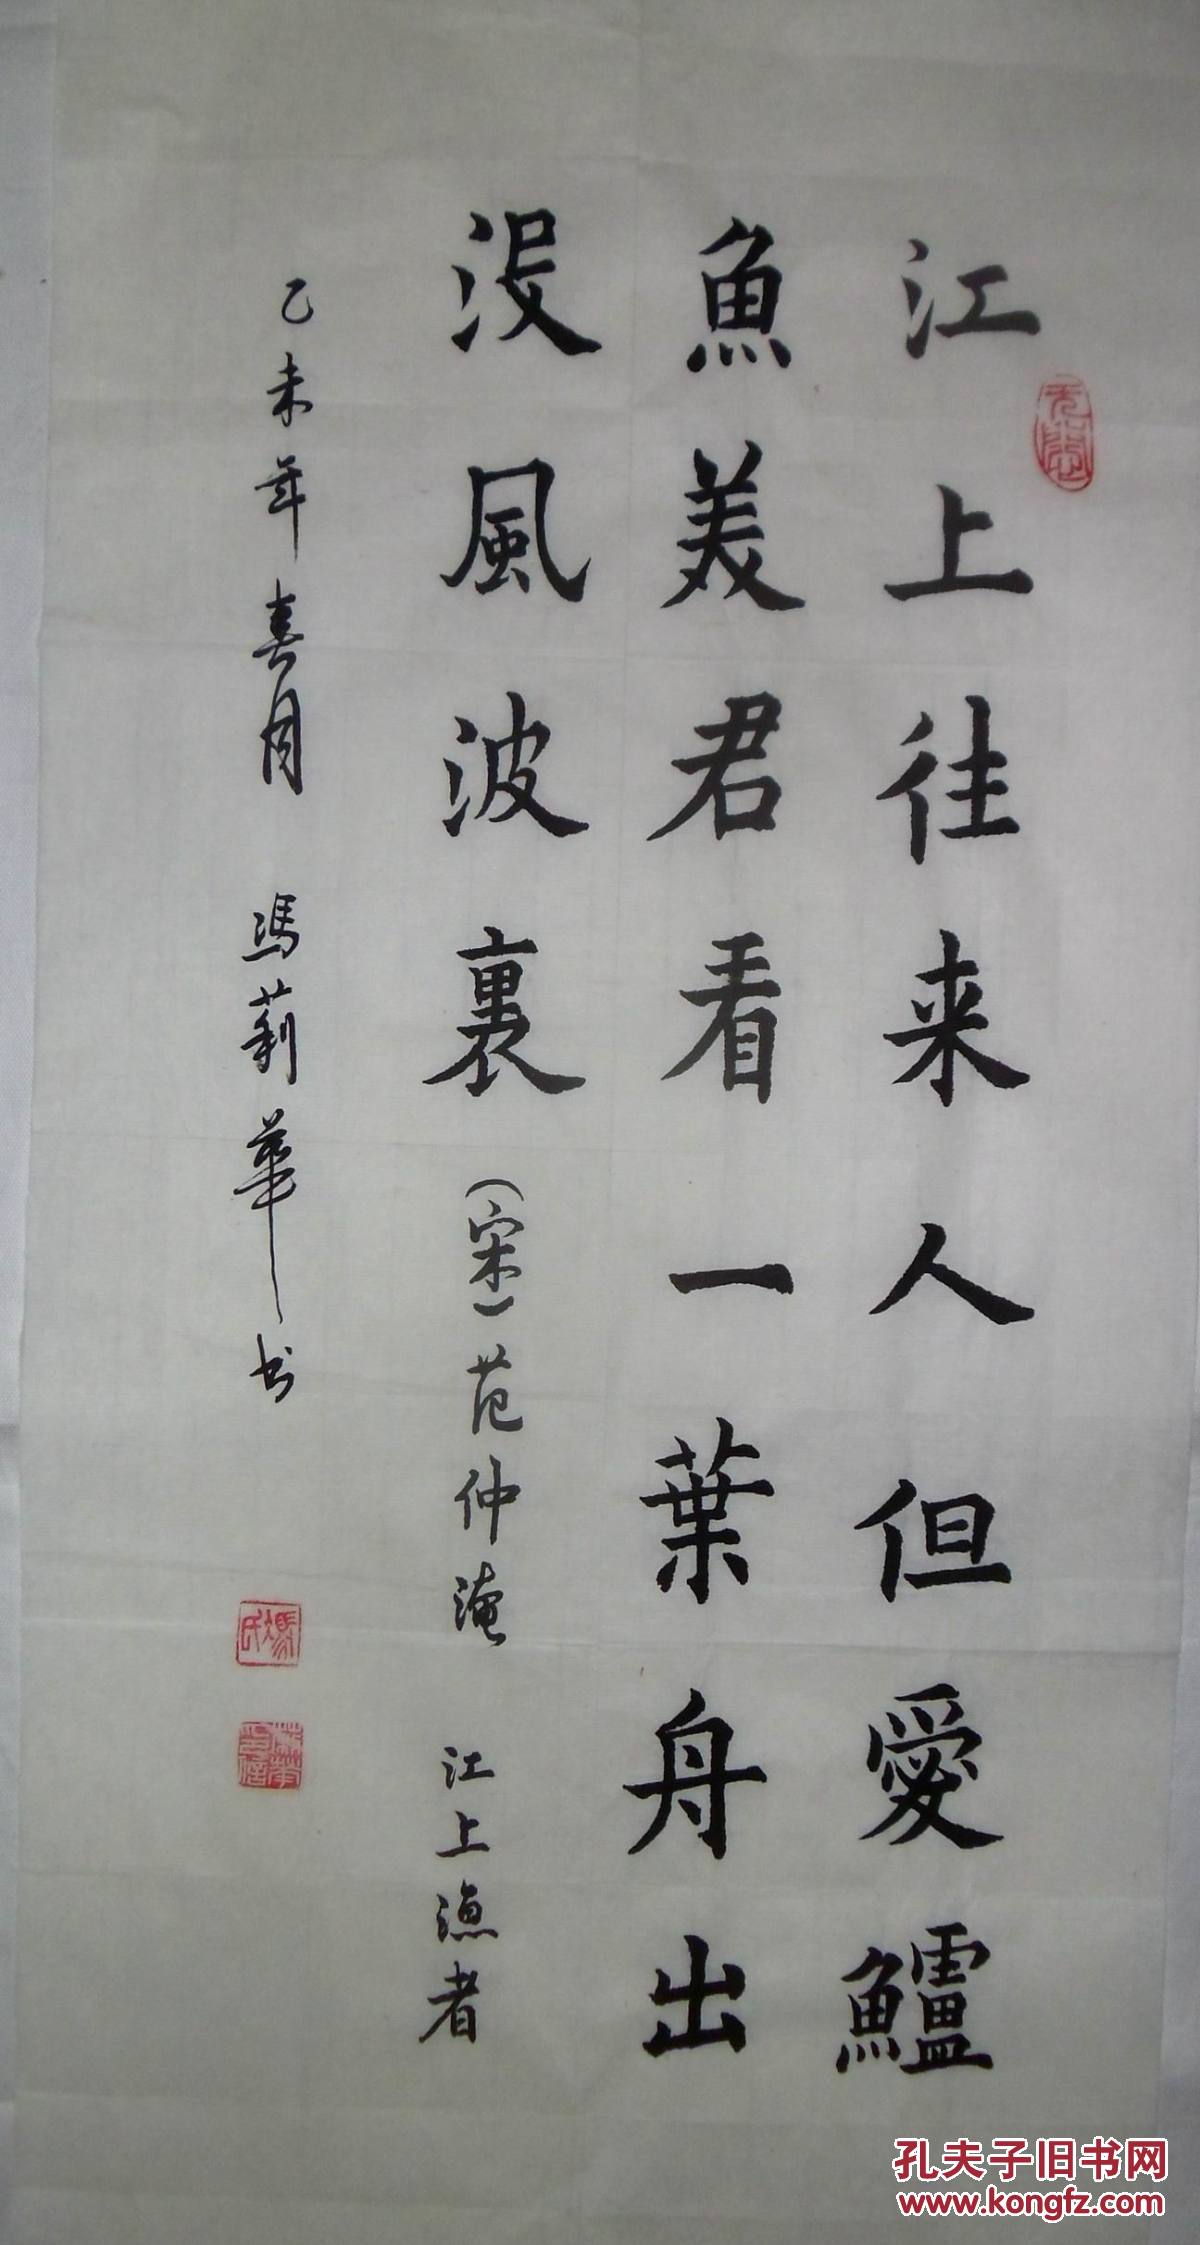 江上往来人但愛鱸
魚美君看一葉舟出
没風波裏（宋）范仲淹 江上漁者
乙未年春月 馮莉華书
馮氏
孔夫子旧书网
www.kongfz.com